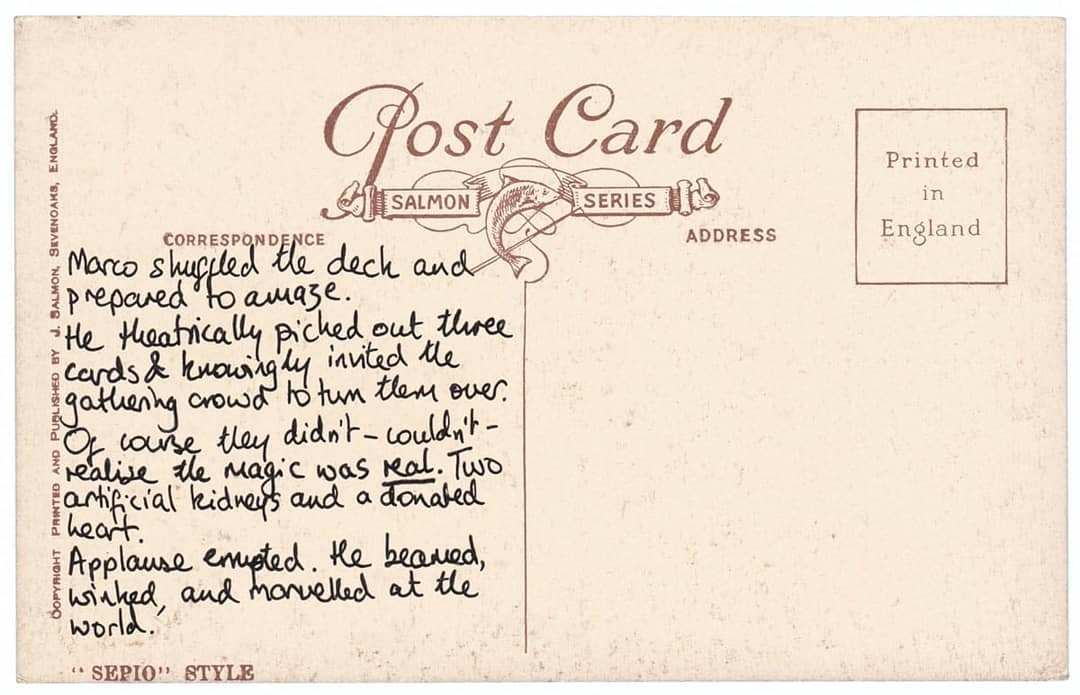 Post Card
SALMON SERIES
CORRESPONDENCE
ADDRESS
Printed
in
England
COPYRIGHT PRINTED AND PUBLISHED BY J. SALMON, SEVENOAKS, ENGLAND.
Marco shuffled the deck and
prepared to amaze.
He theatrically picked out three
cards & knowingly invited the
gathering crowd to turn them over.
Of course they didn't – couldn't –
realise the magic was real. Two
artificial kidneys and a donated
heart.
Applause errupted. He beamed,
winked, and marvelled at the
world.
"SEPIO" STYLE